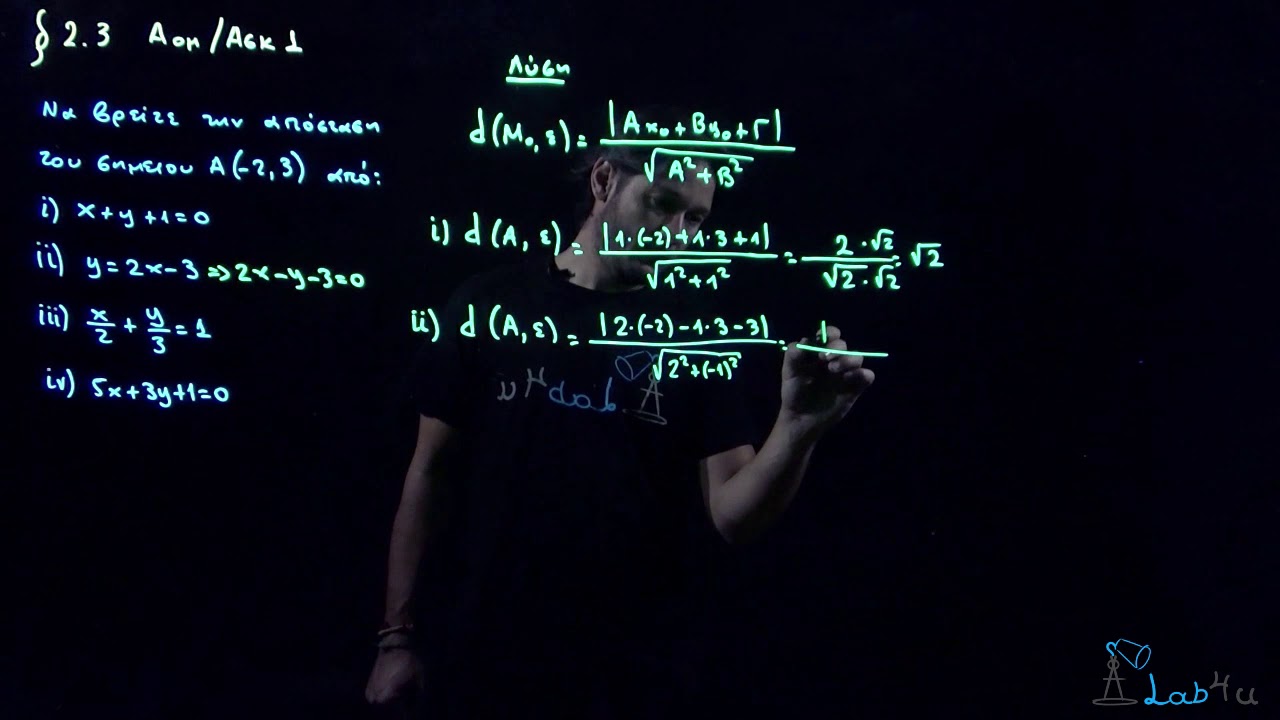 § 2.3 Αομ/Ασκ 1
Να βρείτε την απόσταση
του σημείου Α(-2,3) από:
i) x+y+1=0
ii) y=2x-3 => 2x-y-3=0
iii) x/2 + y/3 = 1
iv) 5x+3y+1=0
Λύση
d(M₀, ε) = |Ax₀+By₀+Γ| / √(A²+B²)
i) d(A, ε) = |1·(-2)+1·3+1| / √(1²+1²) = 2·√2 / √2·√2 = √2
ii) d(A, ε) = |2·(-2)-1·3-3| / √(2²+(-1)²) = 1
Lab4u
Lab4u